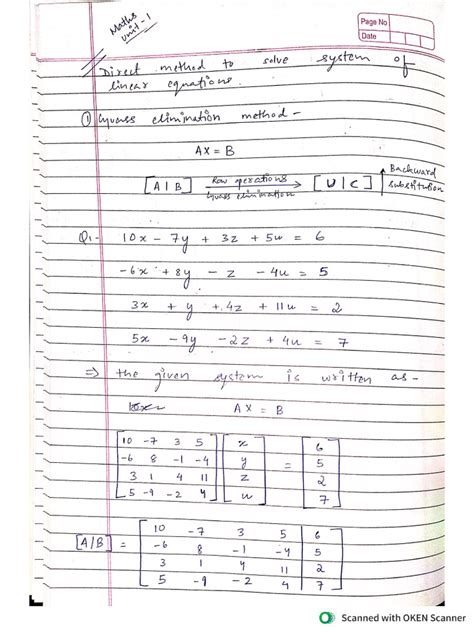 Maths
Unit-1
Page No
Date
Direct method to solve system of
linear equations.
① Guass elimination method -
AX = B
[A|B] Row operations → [U|C] ↑ Backward substitution
Guass elimination
Q1- 10x - 7y + 3z + 5u = 6
-6x + 8y - z - 4u = 5
3x + y + 4z + 11u = 2
5x - 9y - 2z + 4u = 7
⇒ the given system is written as -
AX = B
10 -7 3 5 x 6
-6 8 -1 -4 y = 5
3 1 4 11 z 2
5 -9 -2 4 u 7
[A|B] = 10 -7 3 5 6
-6 8 -1 -4 5
3 1 4 11 2
5 -9 -2 4 7
Scanned with OKEN Scanner